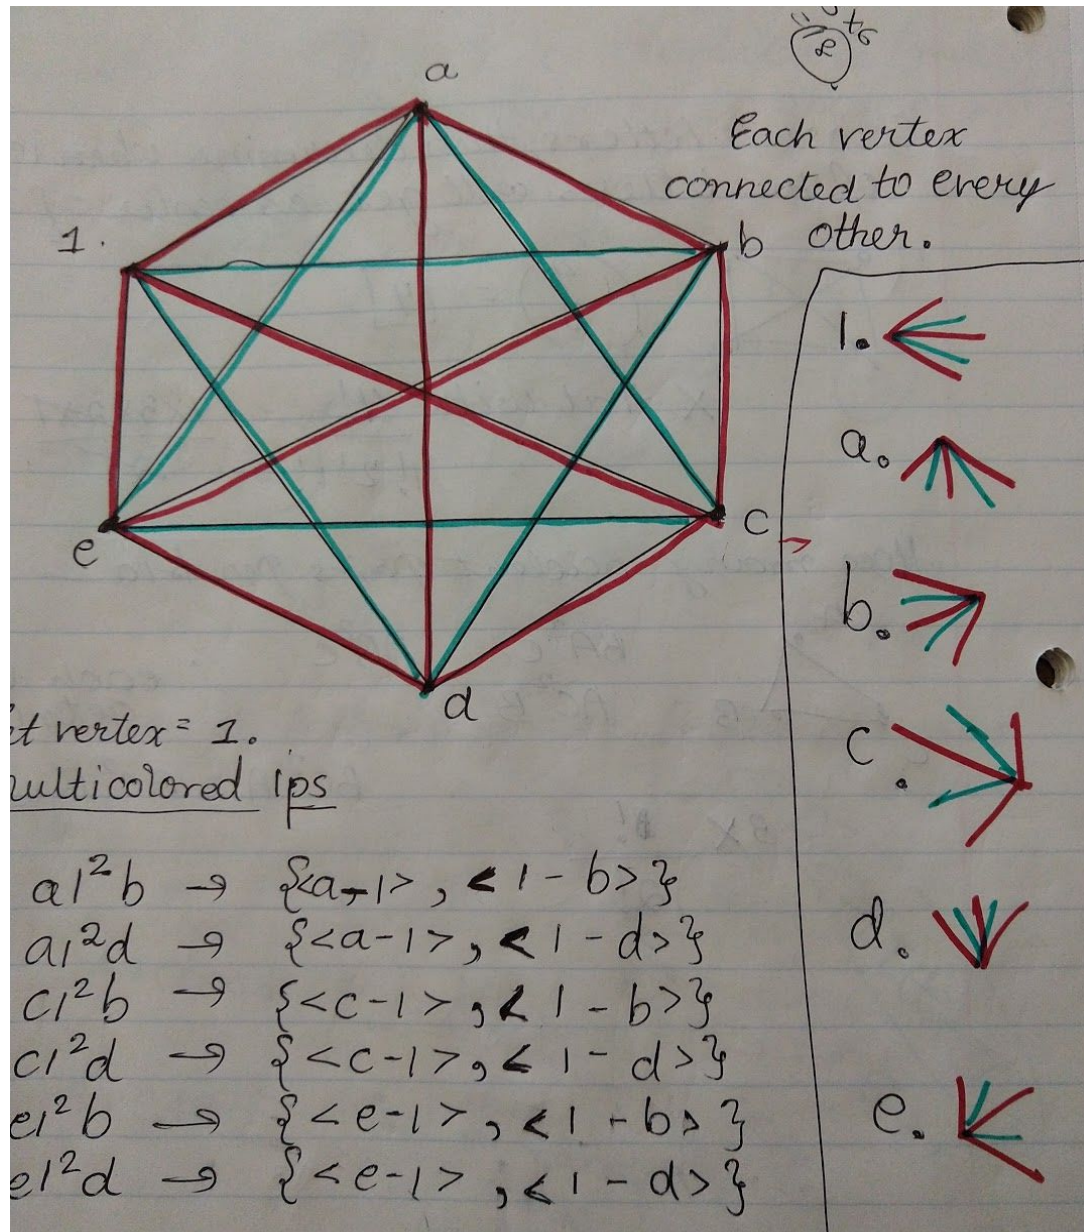 a
Each vertex
connected to every
other.
1.
b
1.
a.
e
c
b.
d
c.
et vertex = 1.
multicolored lps
d.
a1²b → {<a-1>, <1-b>}
a1²d → {<a-1>, <1-d>}
c1²b → {<c-1>, <1-b>}
c1²d → {<c-1>, <1-d>}
e1²b → {<e-1>, <1-b>}
e1²d → {<e-1>, <1-d>}
e.